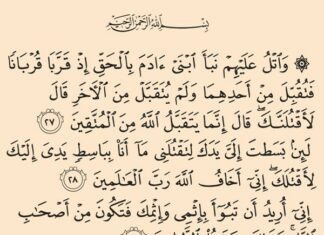 بِسْمِ اللَّهِ الرَّحْمَٰنِ الرَّحِيمِ
۞ وَاتْلُ عَلَيْهِمْ نَبَأَ ابْنَيْ ءَادَمَ بِالْحَقِّ إِذْ قَرَّبَا قُرْبَانًا
فَتُقُبِّلَ مِنْ أَحَدِهِمَا وَلَمْ يُتَقَبَّلْ مِنَ الْآخَرِ قَالَ
لَأَقْتُلَنَّكَ ۖ قَالَ إِنَّمَا يَتَقَبَّلُ اللَّهُ مِنَ الْمُتَّقِينَ ٢٧
لَئِنْ بَسَطتَ إِلَيَّ يَدَكَ لِتَقْتُلَنِي مَا أَنَا بِبَاسِطٍ يَدِيَ إِلَيْكَ
لِأَقْتُلَكَ ۖ إِنِّي أَخَافُ اللَّهَ رَبَّ الْعَالَمِينَ ٢٨
إِنِّي أُرِيدُ أَن تَبُوءَ بِإِثْمِي وَإِثْمِكَ فَتَكُونَ مِنْ أَصْحَابِ